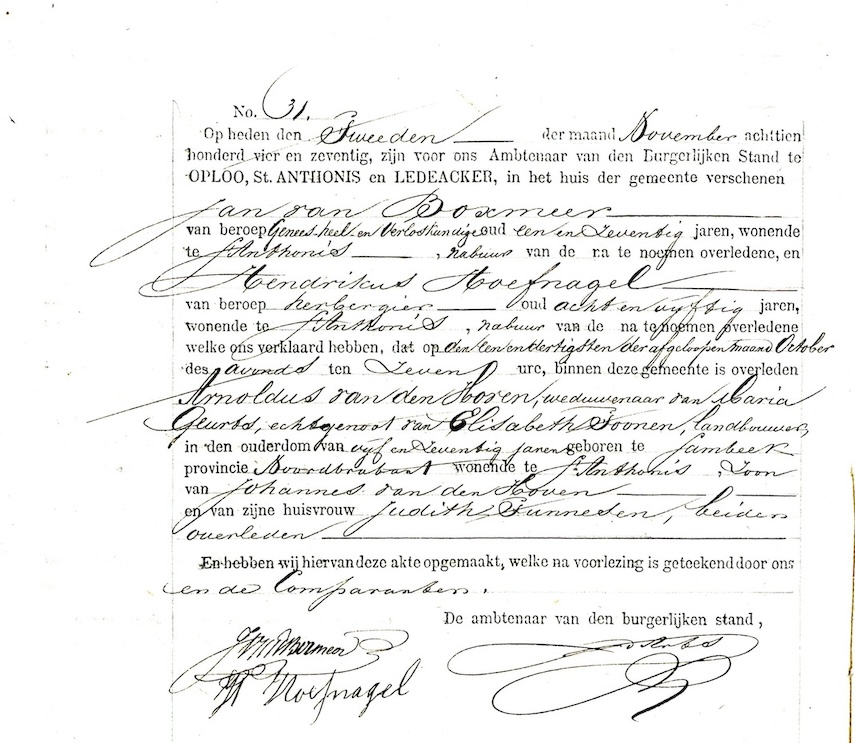 No. 31.
Op heden den Tweeden der maand November achttien
honderd vier en zeventig, zijn voor ons Ambtenaar van den Burgerlijken Stand te
OPLOO, St. ANTHONIS en LEDEACKER, in het huis der gemeente verschenen
Jan van Boxmeer
van beroep Genees heel en Verloskundige oud een en Zeventig jaren, wonende
te St Anthonis , nabuur van de na te noemen overledene, en
Hendrikus Hoefnagel
van beroep herbergier oud acht en vyftig jaren,
wonende te St Anthonis , nabuur van de na te noemen overledene
welke ons verklaard hebben, dat op den een en dertigsten der afgeloopen maand October
des avonds ten Zeven ure, binnen deze gemeente is overleden
Arnoldus van den Hoven, weduwenaar van Maria
Geurts, echtgenoot van Elisabeth Toonen, landbouwer,
in den ouderdom van vyf en Zeventig jaren geboren te Sambeek
provincie Noordbrabant wonende te St Anthonis , Zoon
van Johannes van den Hoven
en van zijne huisvrouw Judith Tunnesen, beiden
overleden
En hebben wij hiervan deze akte opgemaakt, welke na voorlezing is geteekend door ons
en de Comparanten.
De ambtenaar van den burgerlijken stand,
H Hoefnagel